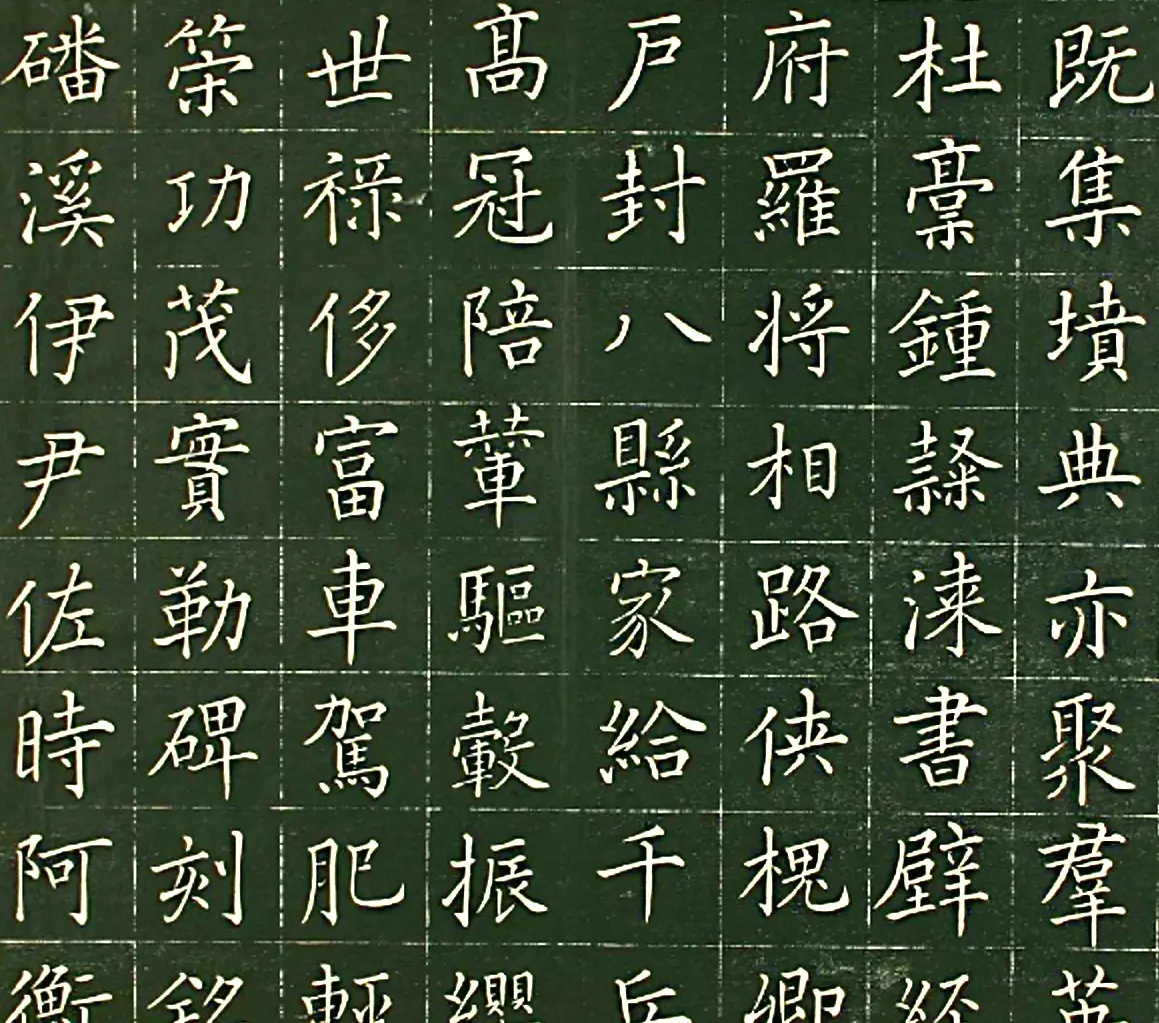 既集墳典亦聚羣英
杜稾鍾隸漆書壁經
府羅將相路俠槐卿
戶封八縣家給千兵
高冠陪輦驅轂振纓
世祿侈富車駕肥輕
策功茂實勒碑刻銘
磻溪伊尹佐時阿衡